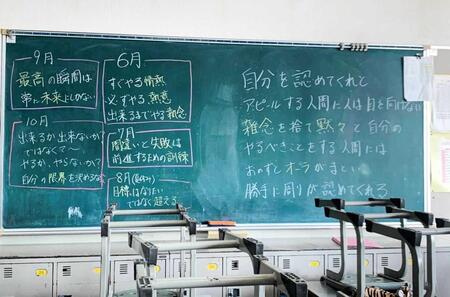 9月
最高の瞬間は
常に未来にしかない
10月
出来るか出来ないか
ではなくて〜
やるか、やらないか?
自分の限界を決めるな
6月
すぐやる情熱
必ずやる熱意
出来るまでやる執念
7月
間違いと失敗は
前進するための訓練
8月(夏休み)
目標はなりたい
ではなく超える
自分を認めてくれと
アピールする人間に人は目を向けない
雑念を捨て黙々と自分の
やるべきことをする人間には
おのずとオーラがまとい
勝手に周りが認めてくれる